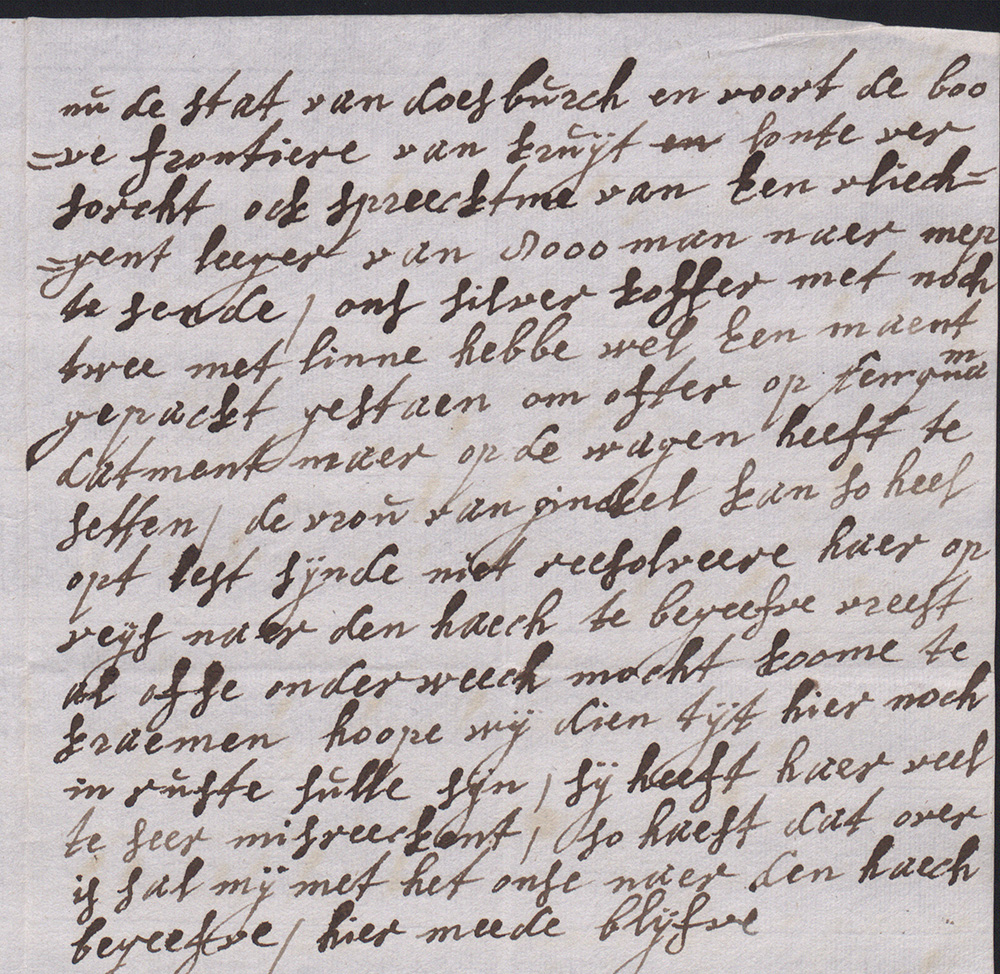 nu de stat van doesburch en voort de boo
=ve frontiere van kruijt en lonte ver
sorcht ock spreecktme van een vliech=
=gent leeger van 8000 man naer mep
te sende / ons silver koffer met noch
twee met linne hebbe wel een maent
gepackt gestaen om ofter op
datment maer op de wagen heeft te
setten / de vrou van ginckel kan so heel
opt lest sijnde niet reesolveere haer op
reijs naer den haech te begeefve vreest
al ofse onderweech mocht koome te
kraemen hoope wij dien tijt hier noch
in ruste sulle sijn / sij heeft haer veel
te seer misreeckent / so haest dat over
is sal mij met het onse naer den haech
begeefve / hier meede blijfve